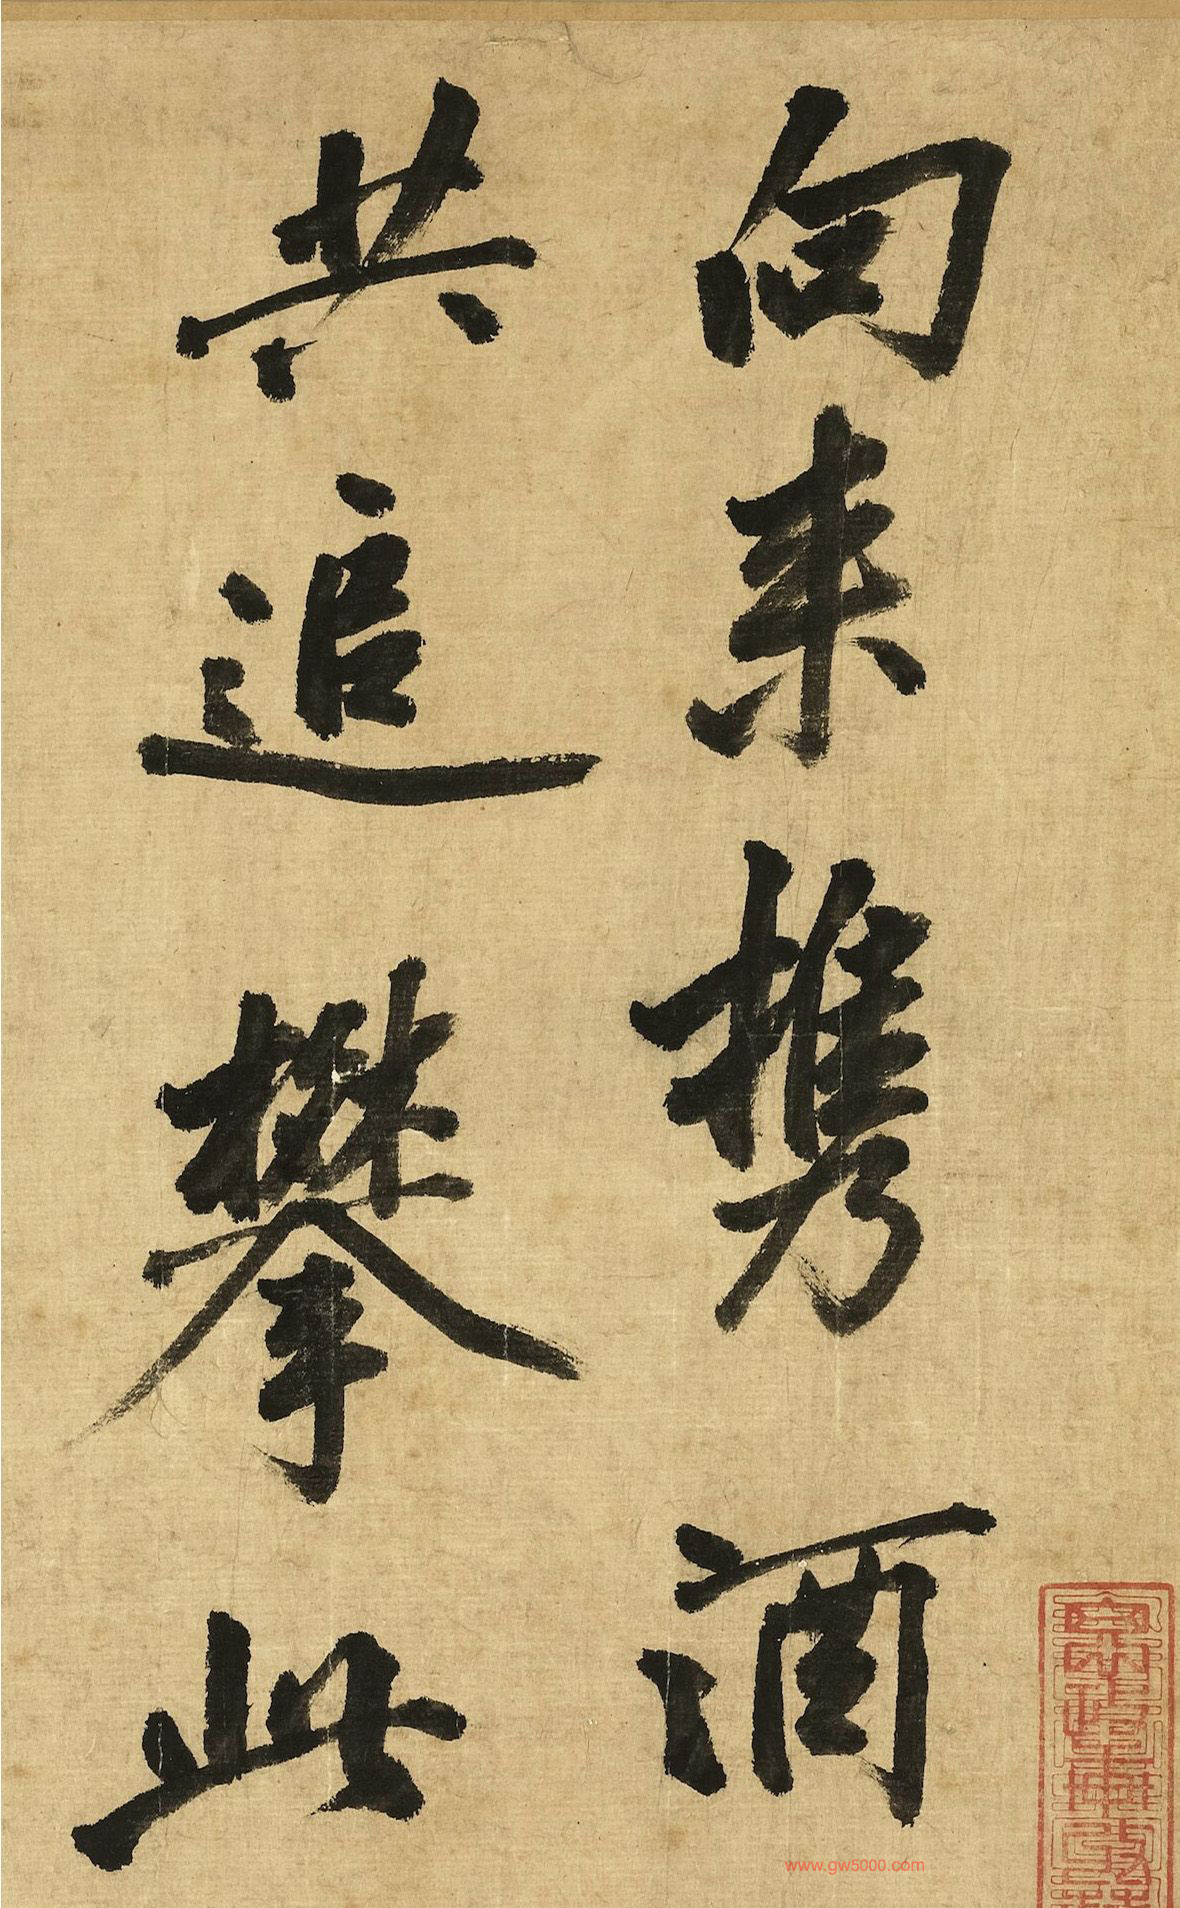 向来携酒
共追攀此
www.gw5000.com